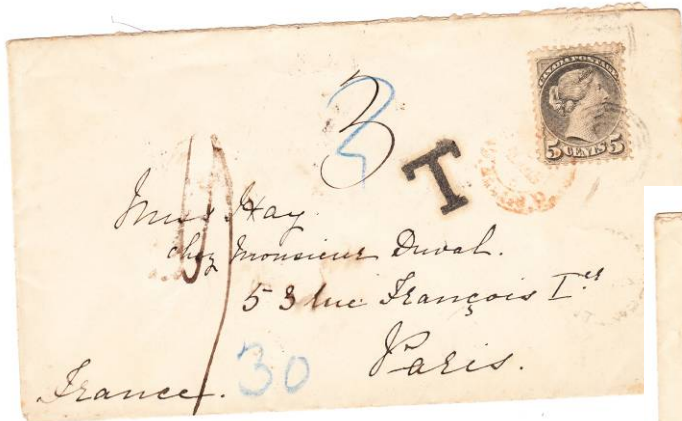 CANADA POSTAGE
5 CENTS 5
3
T
Miss Hay.
chez Monsieur Duval.
53 rue François Ier
Paris.
30
France.